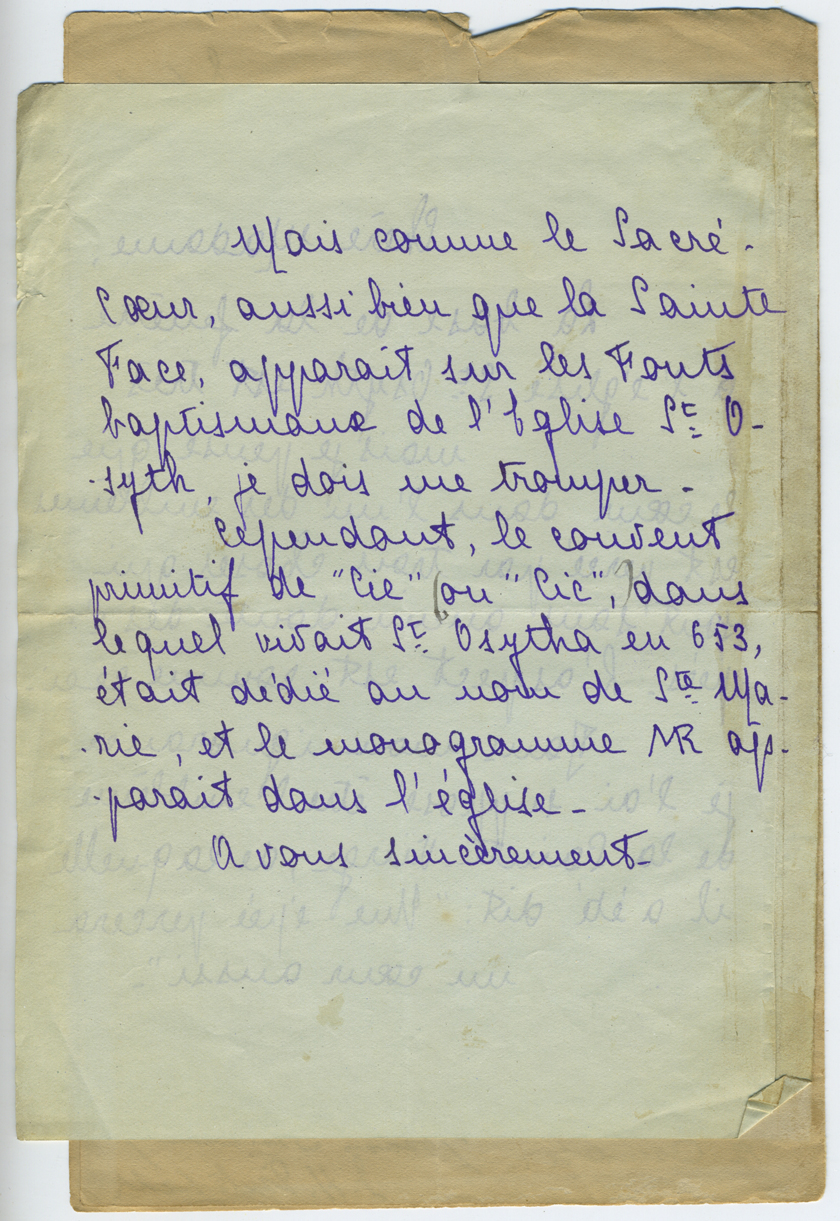 Mais comme le Sacré-
Cœur, aussi bien que la Sainte
Face, apparait sur les Fonts
baptismaux de l'Eglise St O-
-syth, je dois me tromper -
Cependant, le couvent
primitif de "Cic" (ou "Cic",) dans
lequel vivait St Osytha en 653,
était dédié au nom de Ste Ma-
-rie, et le monogramme MR ap-
-parait dans l'église -
A vous sincèrement